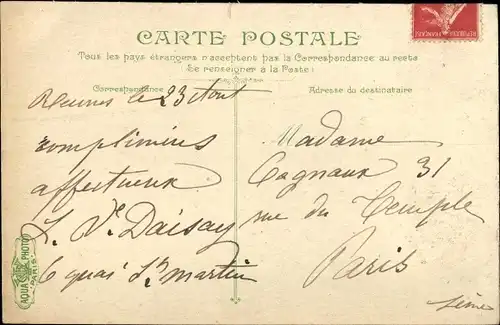 CARTE POSTALE
Tous les pays étrangers n'acceptent pas la Correspondance au recto
(Se renseigner à la Poste)
Correspondance
Adresse du destinataire
Rennes le 23 Aout
compliments
affectueux
6 quai St martin
Madame
Cagnaux 31
rue du Temple
Paris
Seine
AQUA PHOTO
PARIS